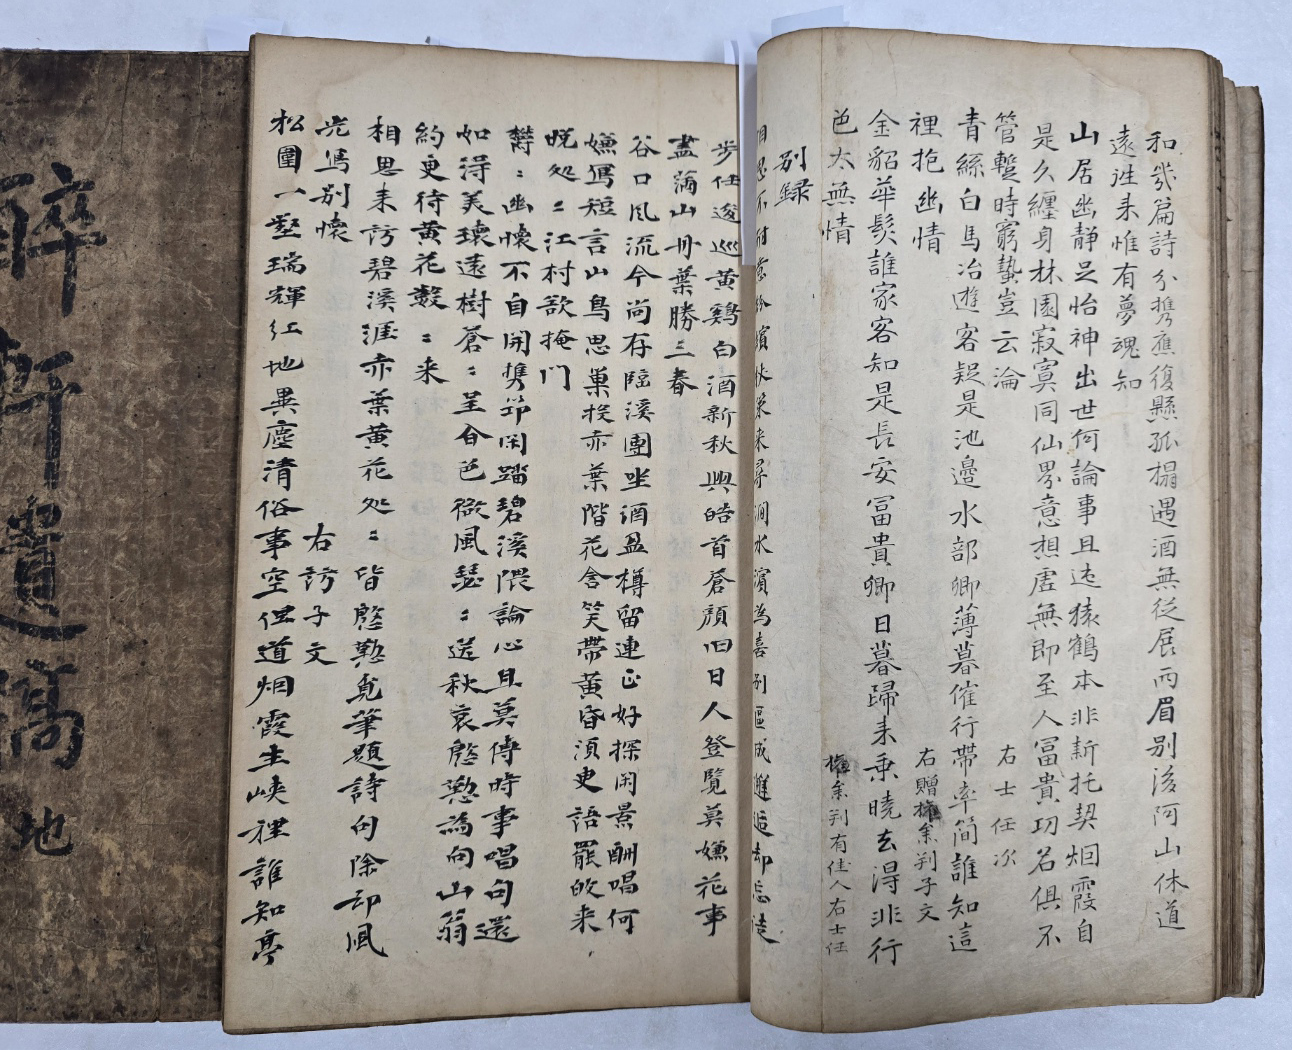 和幾篇詩分携應復懸孤榻遇酒無從展兩眉別後阿山休道
遠往来惟有夢魂知
山居幽靜足怡神出世何論事且迍猿鶴本非新托契烟霞自
是久纏身林園寂寞同仙界意想虛無即至人冨貴功名俱不
管蹔時窮蟄豈云淪
右士任次
青絲白馬冶遊客疑是池邊水部卿薄暮催行帶率簡誰知這
裡抱幽情
右贈 判子文
金貂華髮誰家客知是長安冨貴卿日暮歸来乗曉去淂非行
色太無情
判有佳人右士任
別録
相思不
水濱為喜別區成邂逅却忘徒
步任逡巡黄鷄白酒新秋興皓首蒼顔旧日人登覧莫嫌花事
盡滿山丹葉勝三春
谷口風流今尚存臨溪團坐酒盈樽留連正好探閑景酬唱何
嫌寫短言山鳥思巢投赤葉階花含笑帶黄昏湏臾語罷皈来
晩処〻江村欲掩門
欝〻幽懷不自開携筇閑踏碧溪隈論心且莫傳時事唱句還
如淂美瓌遠樹蒼〻呈合色微風瑟〻送秋哀慇懃為向山翁
約更待黄花敷〻来
相思来訪碧溪涯赤葉黄花処〻皆慇懃覓筆題詩句除却風
光寫別懷
右訪子文
松圍一壑瑞輝紅地異塵清俗事空但道烟霞生峡裡誰知亭
醉軒遺稿
地